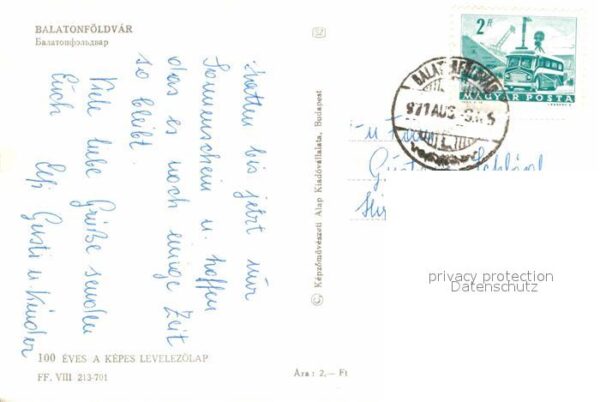 BALATONFÖLDVÁR
Балатонфэльдвар
Hatten bis jetzt nur
Sonnenschein u. hoffen
das es noch einige Zeit
so bleibt.
Viele liebe Grüße senden
Euch Gusti u Kinder
100 ÉVES A KÉPES LEVELEZŐLAP
FF. VIII 213-701
© Képzőművészeti Alap Kiadóvállalata, Budapest
Ára: 2,— Ft
2 Ft
MAGYAR POSTA
971 AUG
privacy protection
Datenschutz